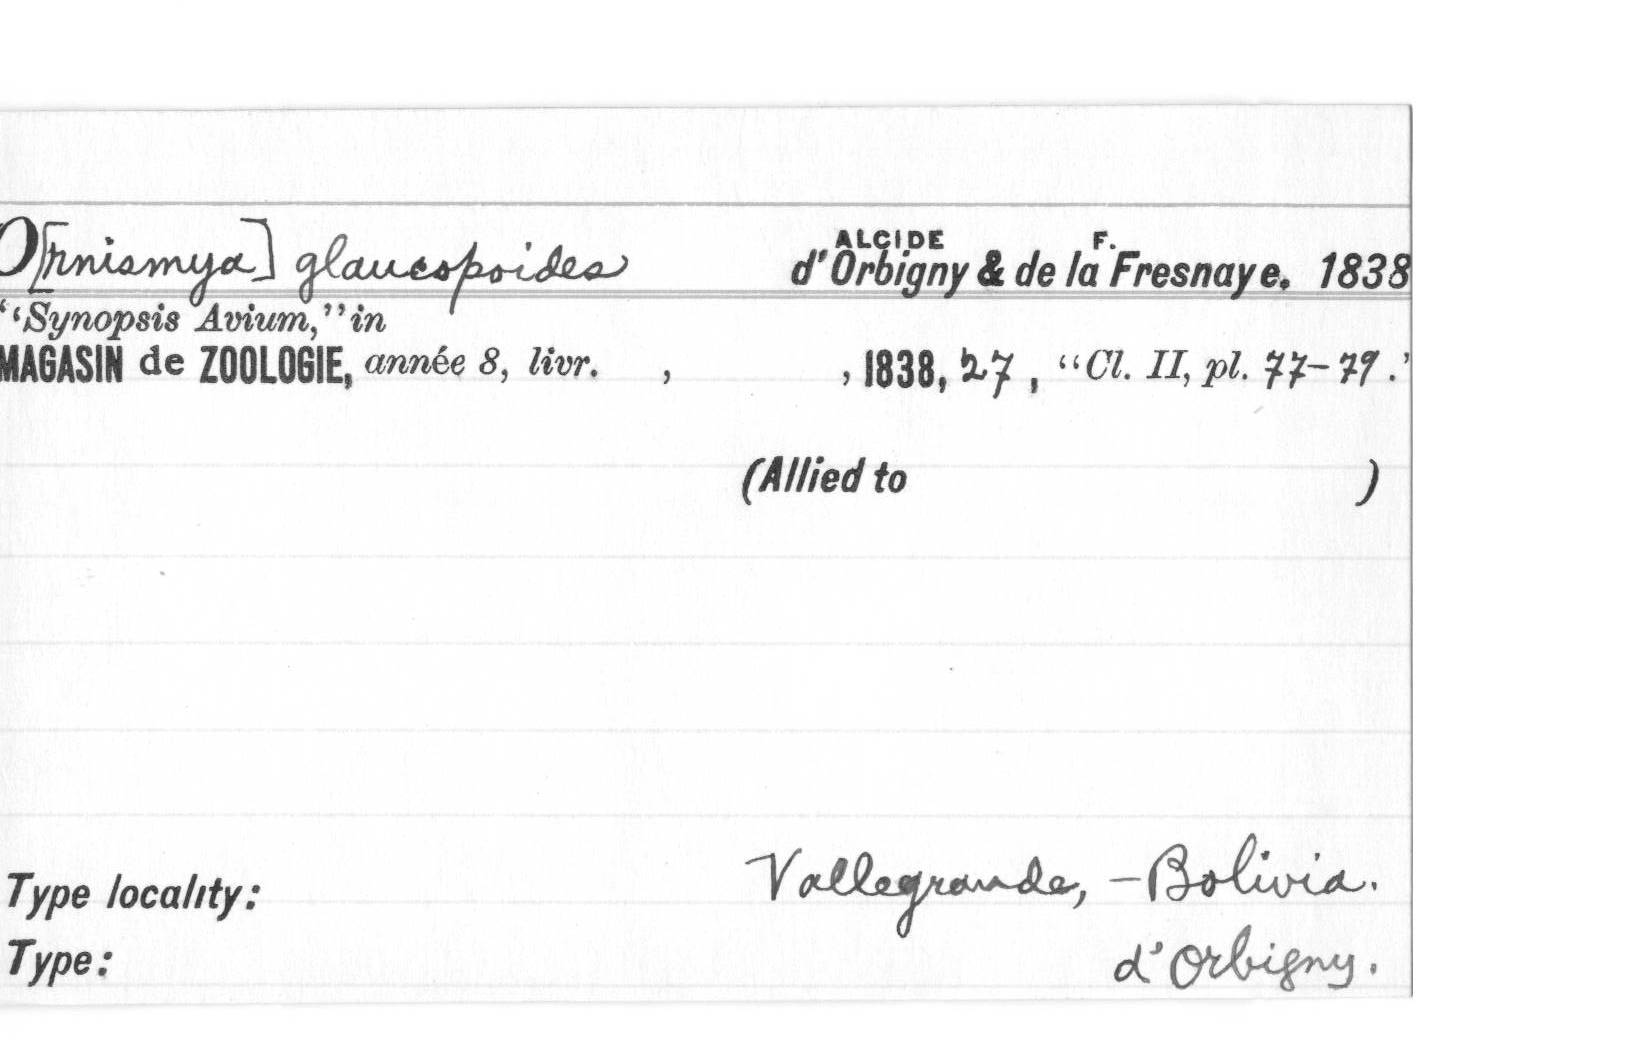 O[rnismya] glaucopoides ALCIDE d'Orbigny & de la F. Fresnaye, 1838
"Synopsis Avium," in
MAGASIN de ZOOLOGIE, année 8, livr. , , 1838, 27, "Cl. II, pl. 77-79.'
(Allied to )
Type locality: Vallegrande, - Bolivia.
Type: d'Orbigny.